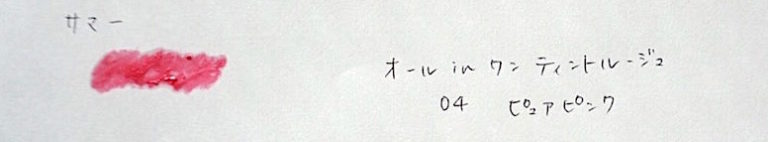 サマー
オール in ワン ティントルージュ
04 ピュアピンク